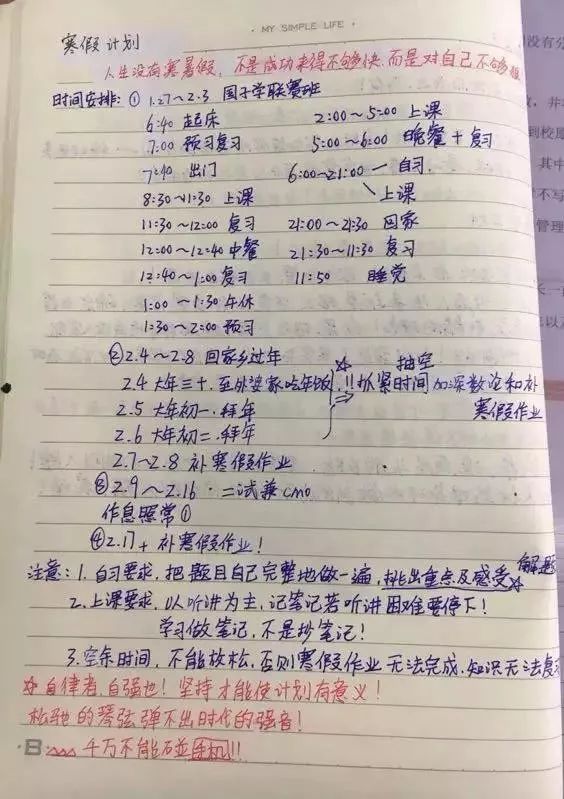 MY SIMPLE LIFE
寒假计划
人生没有寒暑假，不是成功来得不够快，而是对自己不够狠
时间安排：① 1.27~2.3 国子学联赛班
6:40 起床 2:00~5:00 上课
7:00 预习复习 5:00~6:00 晚餐+复习
7:40 出门 6:00~21:00 自习
上课
8:30~11:30 上课
11:30~12:00 复习 21:00~21:30 回家
12:00~12:40 中餐 21:30~11:30 复习
12:40~1:00 复习 11:50 睡觉
1:00~1:30 午休
1:30~2:00 预习
② 2.4~2.8 回家乡过年
2.4 大年三十.至外婆家吃年饭 ☆!! 抓紧时间 抽空 加深数论和补寒假作业
2.5 大年初一.拜年
2.6 大年初二.拜年
2.7~2.8 补寒假作业
③ 2.9~2.16. 二试兼CMO
作息照常①
④ 2.17+ 补寒假作业！
注意：1. 自习要求，把题目自己完整地做一遍，挑出重点及感受 解题
2. 上课要求，以听讲为主，记笔记若听讲困难要停下！
学习做笔记，不是抄笔记！
3. 空余时间，不能放松，否则寒假作业无法完成，知识无法复
☆自律者，自强也！坚持才能使计划有意义！
松弛的琴弦弹不出时代的强音！
千万不能碰手机!!